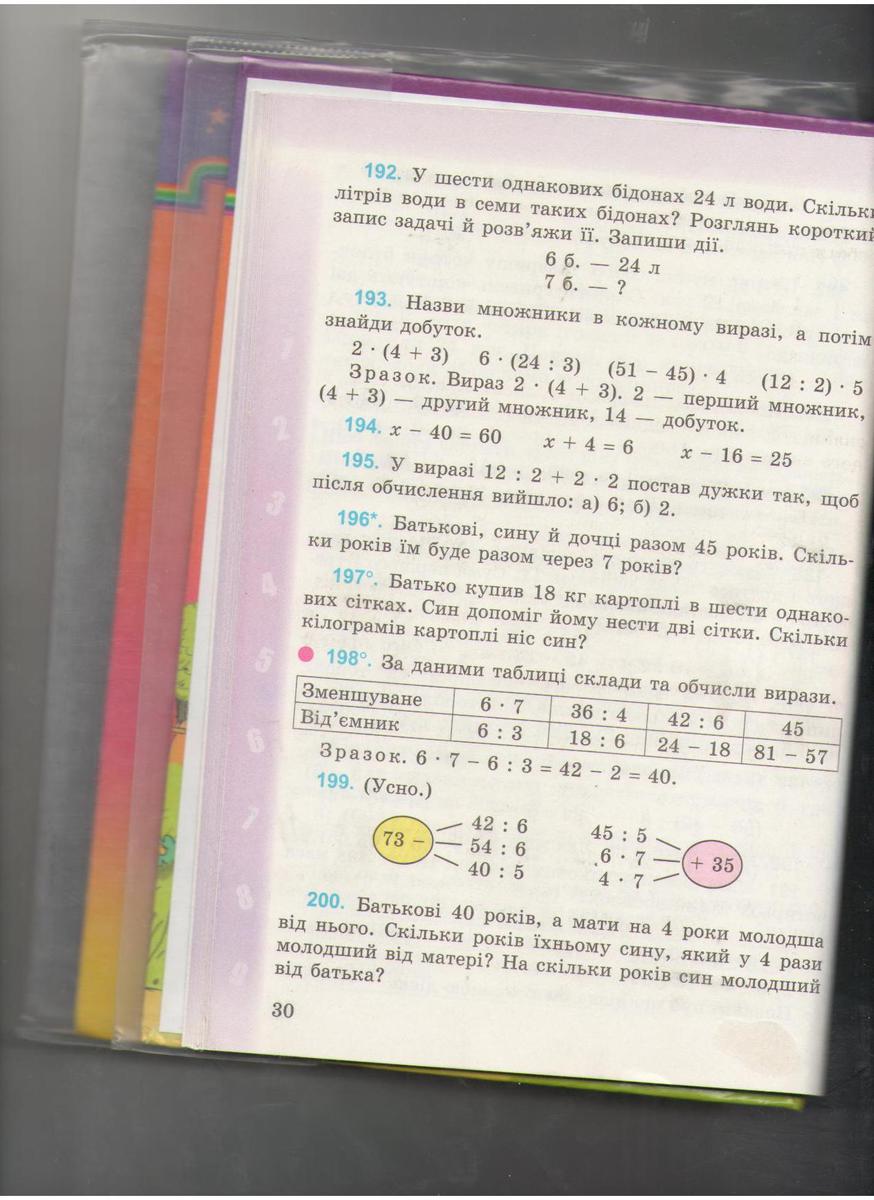 192. У шести однакових бідонах 24 л води. Скільки
літрів води в семи таких бідонах? Розглянь короткий
запис задачі й розв’яжи її. Запиши дії.
6 б. — 24 л
7 б. — ?
193. Назви множники в кожному виразі, а потім
знайди добуток.
2 · (4 + 3) 6 · (24 : 3) (51 – 45) · 4 (12 : 2) · 5
Зразок. Вираз 2 · (4 + 3). 2 — перший множник,
(4 + 3) — другий множник, 14 — добуток.
194. x – 40 = 60 x + 4 = 6 x – 16 = 25
195. У виразі 12 : 2 + 2 · 2 постав дужки так, щоб
після обчислення вийшло: а) 6; б) 2.
196*. Батькові, сину й дочці разом 45 років. Скіль-
ки років їм буде разом через 7 років?
197°. Батько купив 18 кг картоплі в шести однако-
вих сітках. Син допоміг йому нести дві сітки. Скільки
кілограмів картоплі ніс син?
198°. За даними таблиці склади та обчисли вирази.
Зменшуване 6 · 7 36 : 4 42 : 6 45
Від’ємник 6 : 3 18 : 6 24 – 18 81 – 57
Зразок. 6 · 7 – 6 : 3 = 42 – 2 = 40.
199. (Усно.)
42 : 6 45 : 5
73 – 54 : 6 6 · 7 + 35
40 : 5 4 · 7
200. Батькові 40 років, а мати на 4 роки молодша
від нього. Скільки років їхньому сину, який у 4 рази
молодший від матері? На скільки років син молодший
від батька?
30
1
2
3
4
5
6
7
8
9